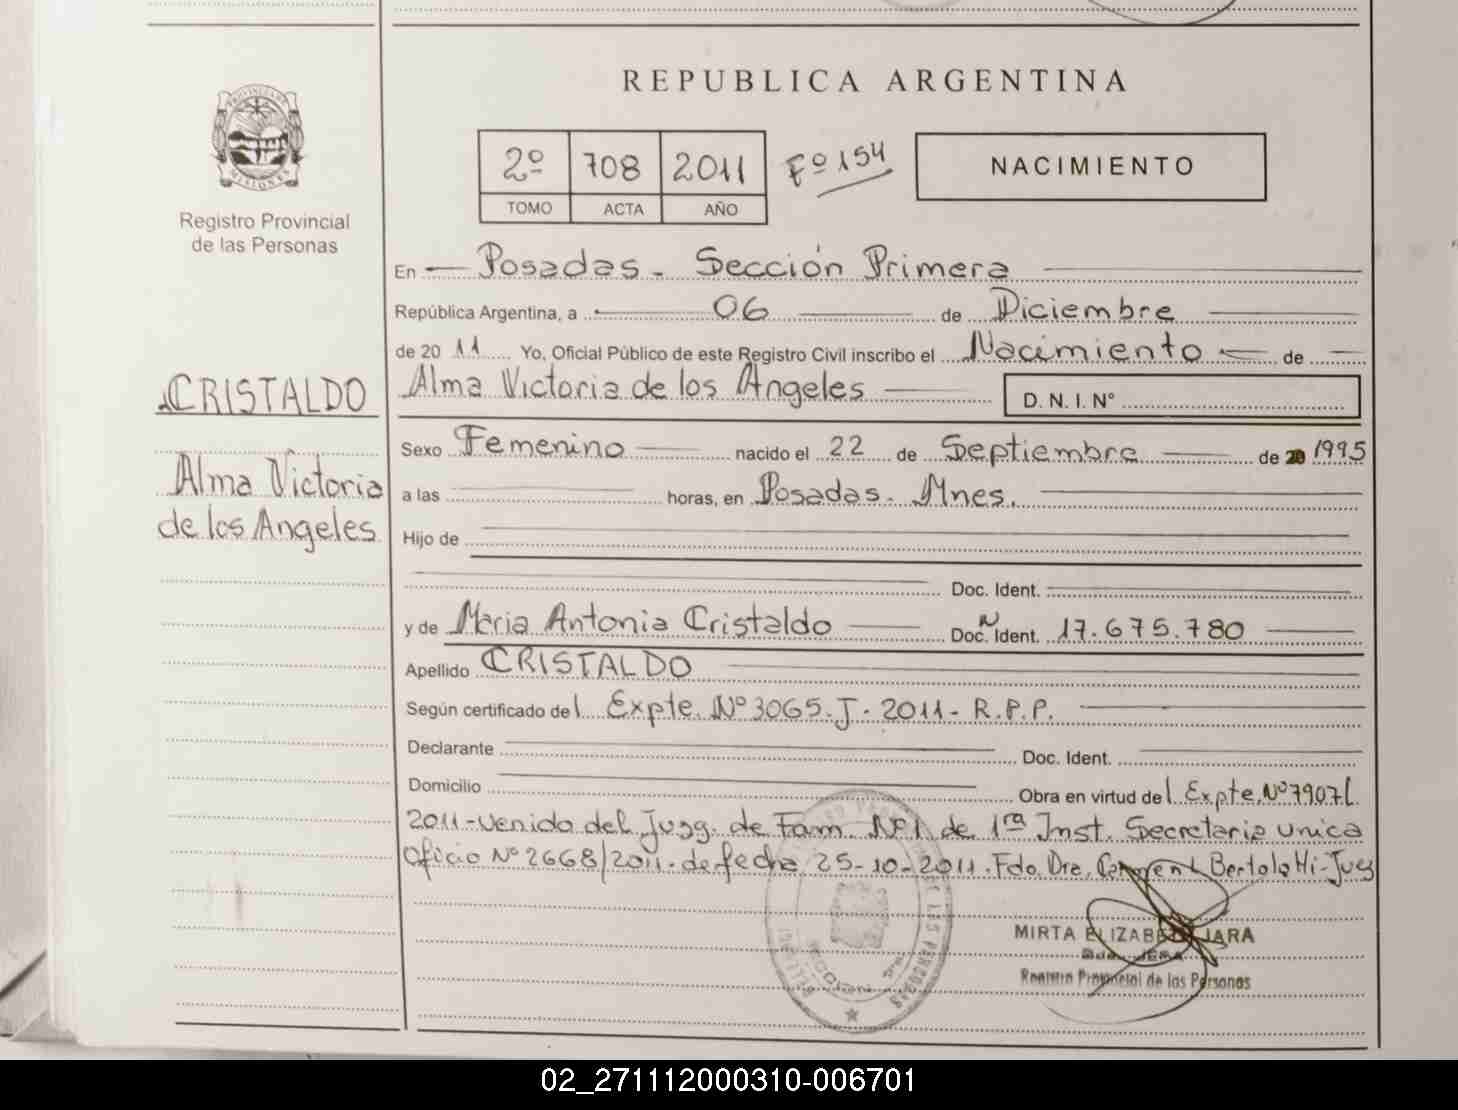 REPUBLICA ARGENTINA
PROVINCIA DE MISIONES
Registro Provincial
de las Personas
2º 708 2011 Fº 154
TOMO ACTA AÑO
NACIMIENTO
En Posadas. Sección Primera
República Argentina, a 06 de Diciembre
de 20 11 Yo, Oficial Público de este Registro Civil inscribo el Nacimiento de
Alma Victoria de los Angeles D. N. I. Nº
CRISTALDO
Alma Victoria
de los Angeles
Sexo Femenino nacido el 22 de Septiembre de 20 1995
a las horas, en Posadas. Mnes.
Hijo de
Doc. Ident.
y de Maria Antonia Cristaldo Doc. N Ident. 17.675.780
Apellido CRISTALDO
Según certificado del Expte. Nº 3065.J. 2011- R.P.P.
Declarante Doc. Ident.
Domicilio Obra en virtud del Expte. Nº 7907/
2011-venido del Juzg. de Fam. Nº1. de 1ra Inst. Secretaria unica
Oficio Nº 2668/2011. de fecha 25-10-2011. Fdo. Dra. Carmen Bertolotti-Juez
MIRTA ELIZABETH JARA
Registro Provincial de las Personas
02_271112000310-006701